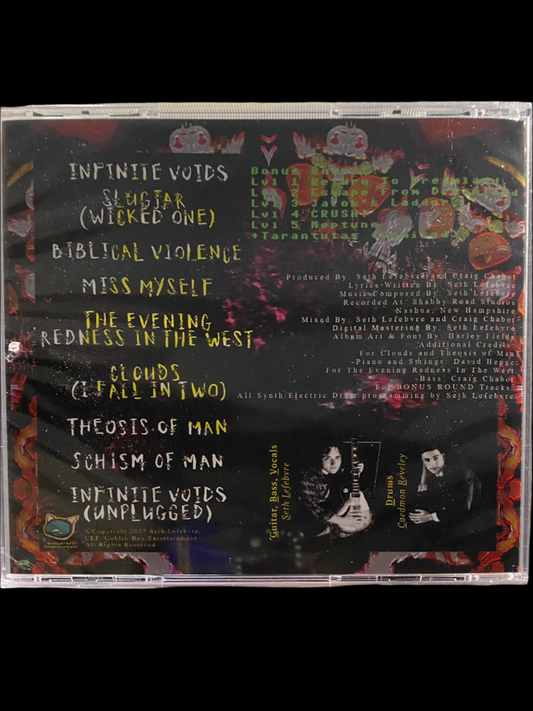 INFINITE VOIDS
SLUGJAR
(WICKED ONE)
BIBLICAL VIOLENCE
MISS MYSELF
THE EVENING
REDNESS IN THE WEST
CLOUDS
(I FALL IN TWO)
THEOSIS OF MAN
SCHISM OF MAN
INFINITE VOIDS
(UNPLUGGED)
Bonus
Lvl 1 Return To Dreamland
Lvl 2 Escape From
Lvl 3 Jacob's Ladder
Lvl 4 CRUSH
Lvl 5 Neptune
+Tarantulas
Produced By: Seth Lefebvre and Craig Chabot
Lyrics Written By: Seth Lefebvre
Music Composed By: Seth Lefebvre
Recorded At: Shabby Road Studios
Nashua, New Hampshire
Mixed By: Seth Lefebvre and Craig Chabot
Digital Mastering By: Seth Lefebvre
Album Art & Font By: Harley Fields
Additional Credits:
For Clouds and Theosis of Man
-Piano and Strings: David Hegge
For The Evening Redness In The West
-Bass: Craig Chabot
For BONUS ROUND Tracks:
All Synth/Electric Drum programming by Seth Lefebvre
Guitar, Bass, Vocals
Seth Lefebvre
Drums
Caedmon Reveley
©Copyright Seth Lefebvre,
Goblin Box Entertainment.
All Rights Reserved